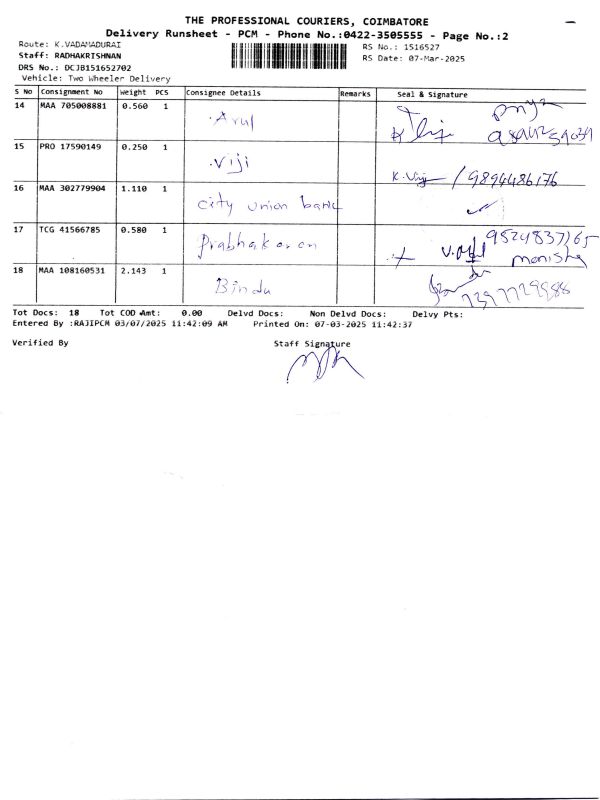 THE PROFESSIONAL COURIERS, COIMBATORE
Delivery Runsheet - PCM - Phone No.:0422-3505555 - Page No.:2
Route: K.VADAMADURAI
RS No.: 1516527
Staff: RADHAKRISHNAN
RS Date: 07-Mar-2025
DRS No.: DCJB151652702
Vehicle: Two Wheeler Delivery
S No Consignment No Weight PCS Consignee Details Remarks Seal & Signature
14 MAA 705008881 0.560 1 Arul
15 PRO 17590149 0.250 1 Viji K. Viji / 9894486176
16 MAA 302779904 1.110 1 City union bank
17 TCG 41566785 0.580 1 Prabhakaran 9524837165
monisha
18 MAA 108160531 2.143 1 Bindu 7397729988
Tot Docs: 18 Tot COD Amt: 0.00 Delvd Docs: Non Delvd Docs: Delvy Pts:
Entered By :RAJIPCM 03/07/2025 11:42:09 AM Printed On: 07-03-2025 11:42:37
Verified By Staff Signature